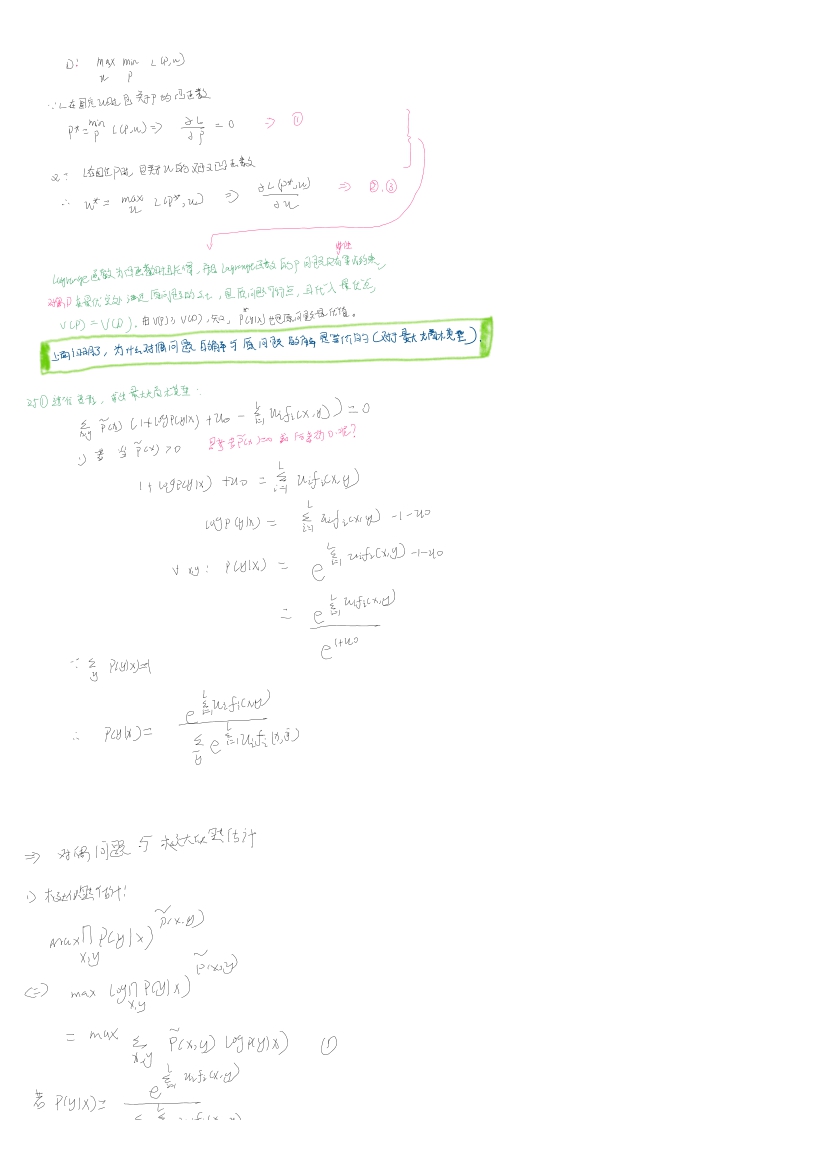 D: max min L(P,u)
u P
∵ L在固定u时是关于P的凸函数
P*= min L(P,u) ⇒ ∂L/∂P = 0 ⇒ ①
P
L在固定P时, 是关于u的凹函数
∴ u* = max L(P*,u) ⇒ ∂L(P*,u)/∂u ⇒ ②,③
u
Lagrange函数为凸函数时, Lagrange函数的
对偶D在最优点处满足原问题的, 是原问题可行点, 且代入最优点
V(P) = V(D). 由V(P) ≥ V(D), 知, P*(y|x)也是原问题最优值。
上面说明了, 为什么对偶问题D的解与原问题的解是等价的(对于最大熵模型).
对①进行变形, 最大熵模型:
Σ_{x,y} P̃(x) (1+logP(y|x) + u0 - Σ_{i=1}^{L} ui fi(x,y)) = 0
1) 若当 P̃(x) > 0 思考若P̃(x)=0
1 + logP(y|x) + u0 = Σ_{i=1}^{L} ui fi(x,y)
log P(y|x) = Σ_{i=1}^{L} ui fi(x,y) -1-u0
∀ x,y: P(y|x) = e^{Σ_{i=1}^{L} ui fi(x,y) -1-u0}
= e^{Σ_{i=1}^{L} ui fi(x,y)} / e^{1+u0}
∵ Σ_y P(y|x)=1
∴ P(y|x) = e^{Σ_{i=1}^{L} ui fi(x,y)} / Σ_ȳ e^{Σ_{i=1}^{L} ui fi(x,ȳ)}
⇒ 对偶问题与极大似然估计
1) 极大似然估计:
max ∏_{x,y} P(y|x)^{P̃(x,y)}
⇔ max log ∏_{x,y} P(y|x)^{P̃(x,y)}
= max Σ_{x,y} P̃(x,y) log P(y|x) ①
若 P(y|x) = e^{Σ_{i=1}^{L} ui fi(x,y)}